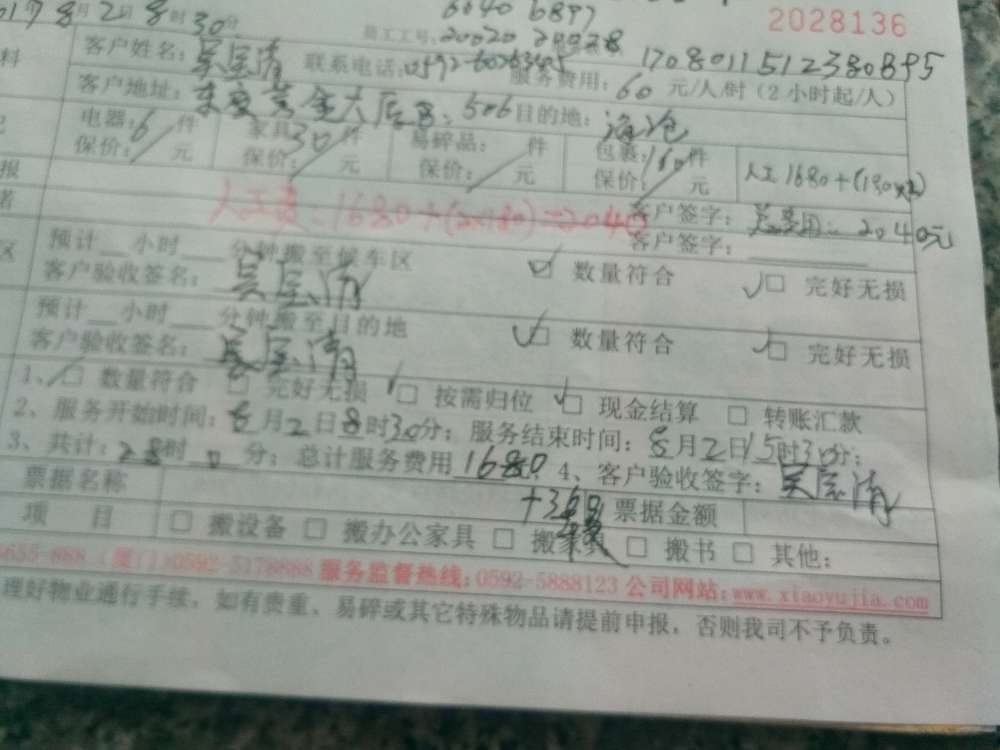 8月2日8时30分
2028136
员工工号:
1708011512380895
客户姓名: 联系电话: 服务费用:60元/人/时(2小时起/人)
客户地址: 506 目的地:海沧
电器:6件 家具:30件 易碎品: 件 包裹:160件
保价: 元 保价: 元 保价: 元 保价: 元 人工1680+(180×2)
人工费:1680+(2×180)=2040
客户签字:总费用:2040元
客户签字:
预计 小时 分钟搬至候车区
客户验收签名: 数量符合 完好无损
预计 小时 分钟搬至目的地
客户验收签名: 数量符合 完好无损
1、数量符合 完好无损 按需归位 现金结算 转账汇款
2、服务开始时间:8月2日8时30分;服务结束时间:8月2日15时30分;
3、共计:28时0分;总计服务费用1680 4、客户验收签字:
+360
票据名称 票据金额
项目 搬设备 搬办公家具 搬家具 搬书 其他:
(厦门)0592-5178888 服务监督热线:0592-5888123 公司网站:www.xiaoyujia.com
理好物业通行手续,如有贵重、易碎或其它特殊物品请提前申报,否则我司不予负责。